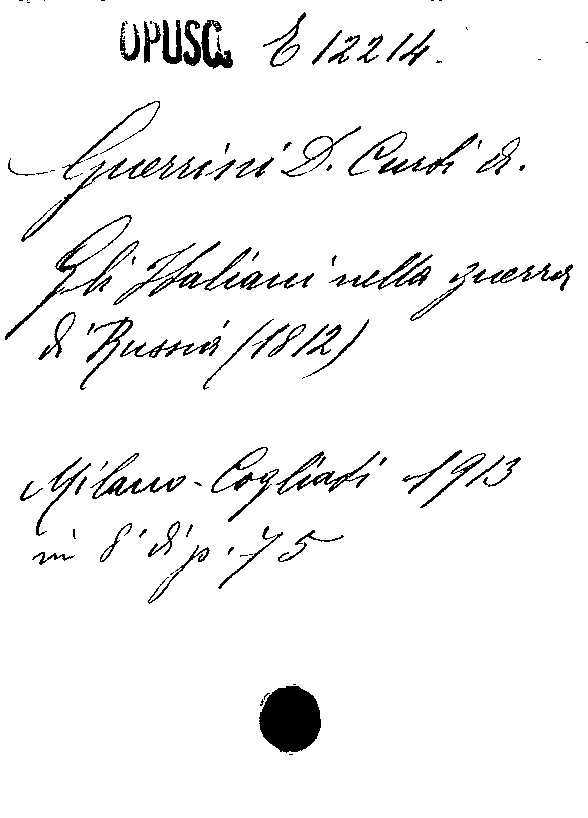 OPUSC. E 12214.
Guerrini D. Curti A.
Gli Italiani nella guerra
di Russia (1812)
Milano - Cogliati 1913
in 8° di p. 75